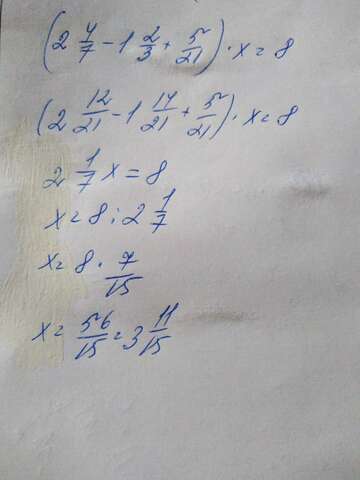 (2 4/7 - 1 2/3 + 5/21) · x = 8
(2 12/21 - 1 14/21 + 5/21) · x = 8
2 1/7 x = 8
x = 8 : 2 1/7
x = 8 · 7/15
x = 56/15 = 3 11/15